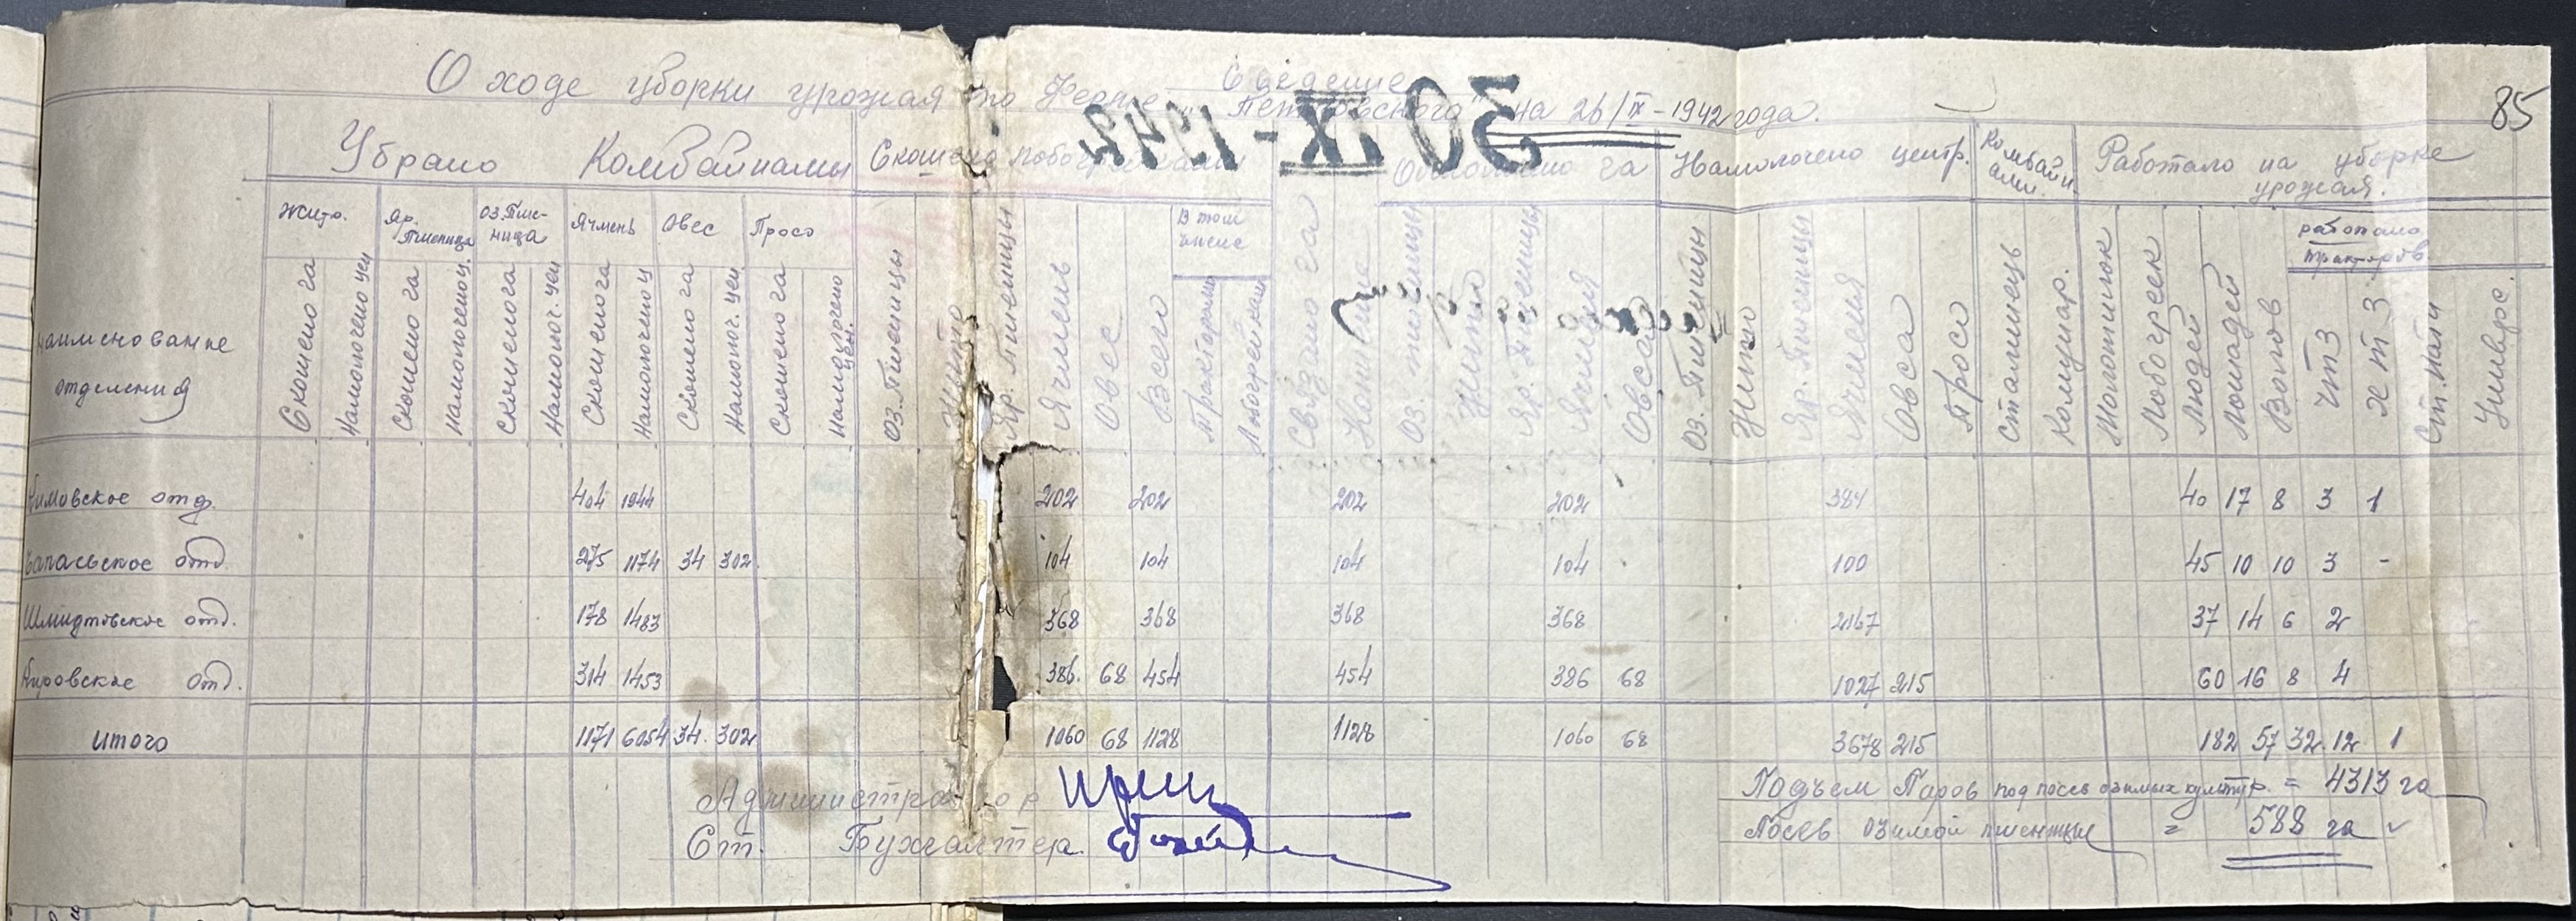 Сведение
О ходе уборки урожая по Ферме "Петровского" на 26/IX-1942 года.
30 IX-1942
85
Убрано Комбайнами Скошено лобогрейками Обмолочено га Намолочено центр. Комбайнами. Работало на уборке урожая.
Жито. Яр. Пшеница Оз. Пшеница Ячмень Овес Просо В том числе работало тракторов
Наименование отделения
Скошено га Намолочено цен Скошено га Намолочено ц. Скошено га Намолоч. цен Скошено га Намолочено ц Скошено га Намолоч. цен Скошено га Намолочено цен.
Оз. Пшеницы Жито Яр. Пшеницы Ячмень Овес Всего Тракторами Лобогрейками Связано га
Оз пшеницы Жито Яр. Пшеницы Ячменя Овса
Оз. Пшеницы Жито Яр. Пшеницы Ячменя Овса Просо
Сталинець Комунар. Молотилок Лобогреек Людей Лошадей Волов ЧТЗ ХТЗ Ст. Нати Универс.
Кимовское отд. 404 1944 202 202 202 202 384 40 17 8 3 1
Чапаевское отд. 275 1174 34 302 104 104 104 104 100 45 10 10 3 -
Шмидтовское отд. 178 1483 368 368 368 368 2167 37 14 6 2
Кировское отд. 314 1453 386. 68 454 454 386 68 1027 215 60 16 8 4
итого 1171 6054 34. 302 1060 68 1128 1128 1060 68 3678 215 182 57 32. 12. 1
Администратор
Ст. Бухгалтер.
Подъем Паров под посев озимых культур. = 4313 га
Посев озимой пшеницы = 588 га